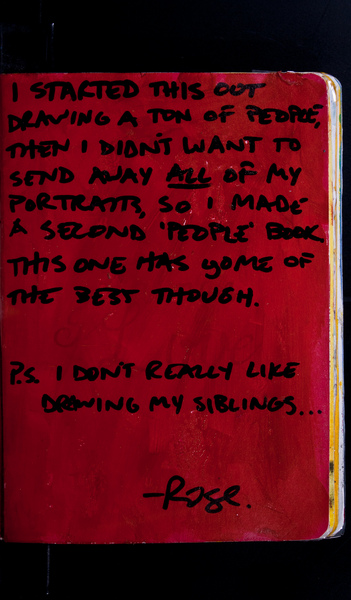 I STARTED THIS OUT
DRAWING A TON OF PEOPLE,
THEN I DIDN'T WANT TO
SEND AWAY ALL OF MY
PORTRAITS, SO I MADE
A SECOND 'PEOPLE' BOOK.
THIS ONE HAS SOME OF
THE BEST THOUGH.
P.S. I DON'T REALLY LIKE
DRAWING MY SIBLINGS...
-ROSE.